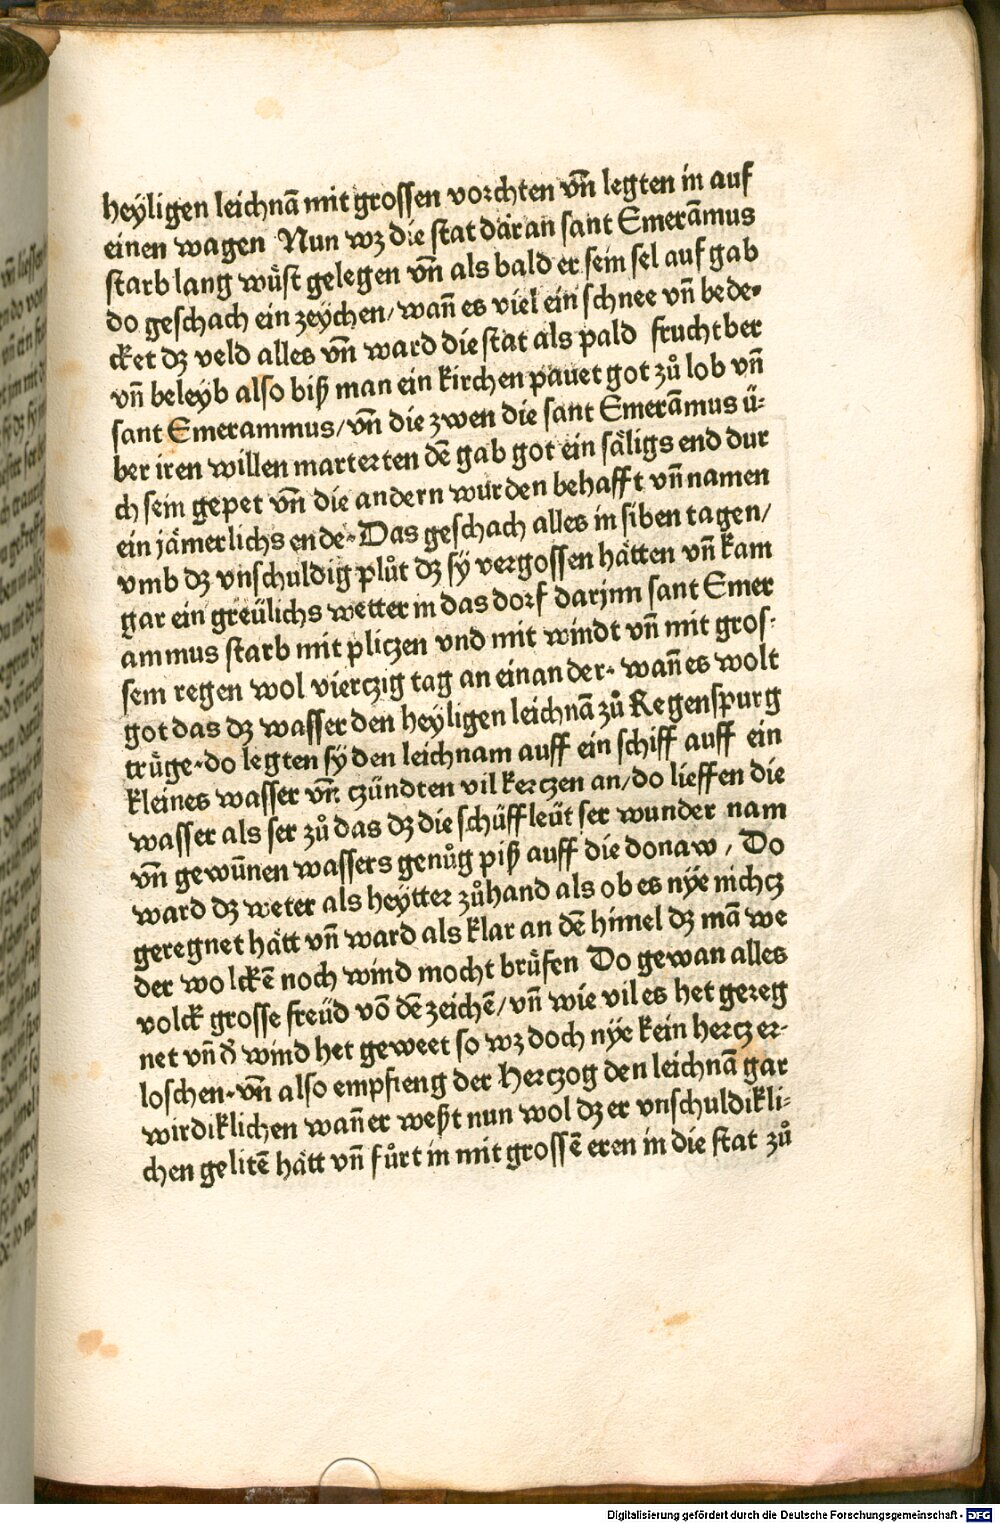 heyligen leichnā mit grossen vorchten vn̄ legten in auf
einen wagen Nun wz die stat dar an sant Emerāmus
starb lang wuͤst gelegen vn̄ als bald er sein sel auf gab
do geschach ein zeychen/ wan̄ es viel ein schnee vn̄ bede⸗
cket dz veld alles vn̄ ward die stat als pald fruchtber
vn̄ beleyb also biß man ein kirchen pauet got zuͦ lob vn̄
sant Emerammus/ vn̄ die zwen die sant Emerāmus uͤ⸗
ber iren willen marterten dē gab got ein saͤligs end dur
ch sein gepet vn̄ die andern wurden behafft vn̄ namen
ein jaͤmerlichs ende. Das geschach alles in siben tagen/
vmb dz vnschuldig pluͦt dz sÿ vergossen haͤtten vn̄ kam
gar ein greuͤlichs wetter in das dorf darjnn sant Emer
ammus starb mit pliczen vnd mit windt vn̄ mit gros⸗
sem regen wol vierczig tag an einander. wan̄ es wolt
got das dz wasser den heyligen leichnā zuͦ Regenspurg
truͤge. do legten sÿ den leichnam auff ein schiff auff ein
kleines wasser vn̄. czuͤndten vil kerczen an/ do lieffen die
wasser als ser zuͦ das dz die schuͤffleuͤt ser wunder nam
vn̄ gewūnen wassers genuͦg piß auff die donaw/ Do
ward dz weter als heÿtter zuͦhand als ob es nÿe nichcz
geregnet haͤtt vn̄ ward als klar an dē himel dz mā we
der wolckē noch wind mocht bruͤfen Do gewan alles
volck grosse freuͤd vō dē zeichē/ vn̄ wie vil es het gereg
net vn̄ đ wind het geweet so wz doch nÿe kein hercz er⸗
loschen. vn̄ also empfieng der Herczog den leichnā gar
wirdiklichen wan̄ er weßt nun wol dz er vnschuldikli⸗
chen gelitē haͤtt vn̄ fuͦrt in mit grossē eren in die stat zuͦ
Digitalisierung gefördert durch die Deutsche Forschungsgemeinschaft - DFG